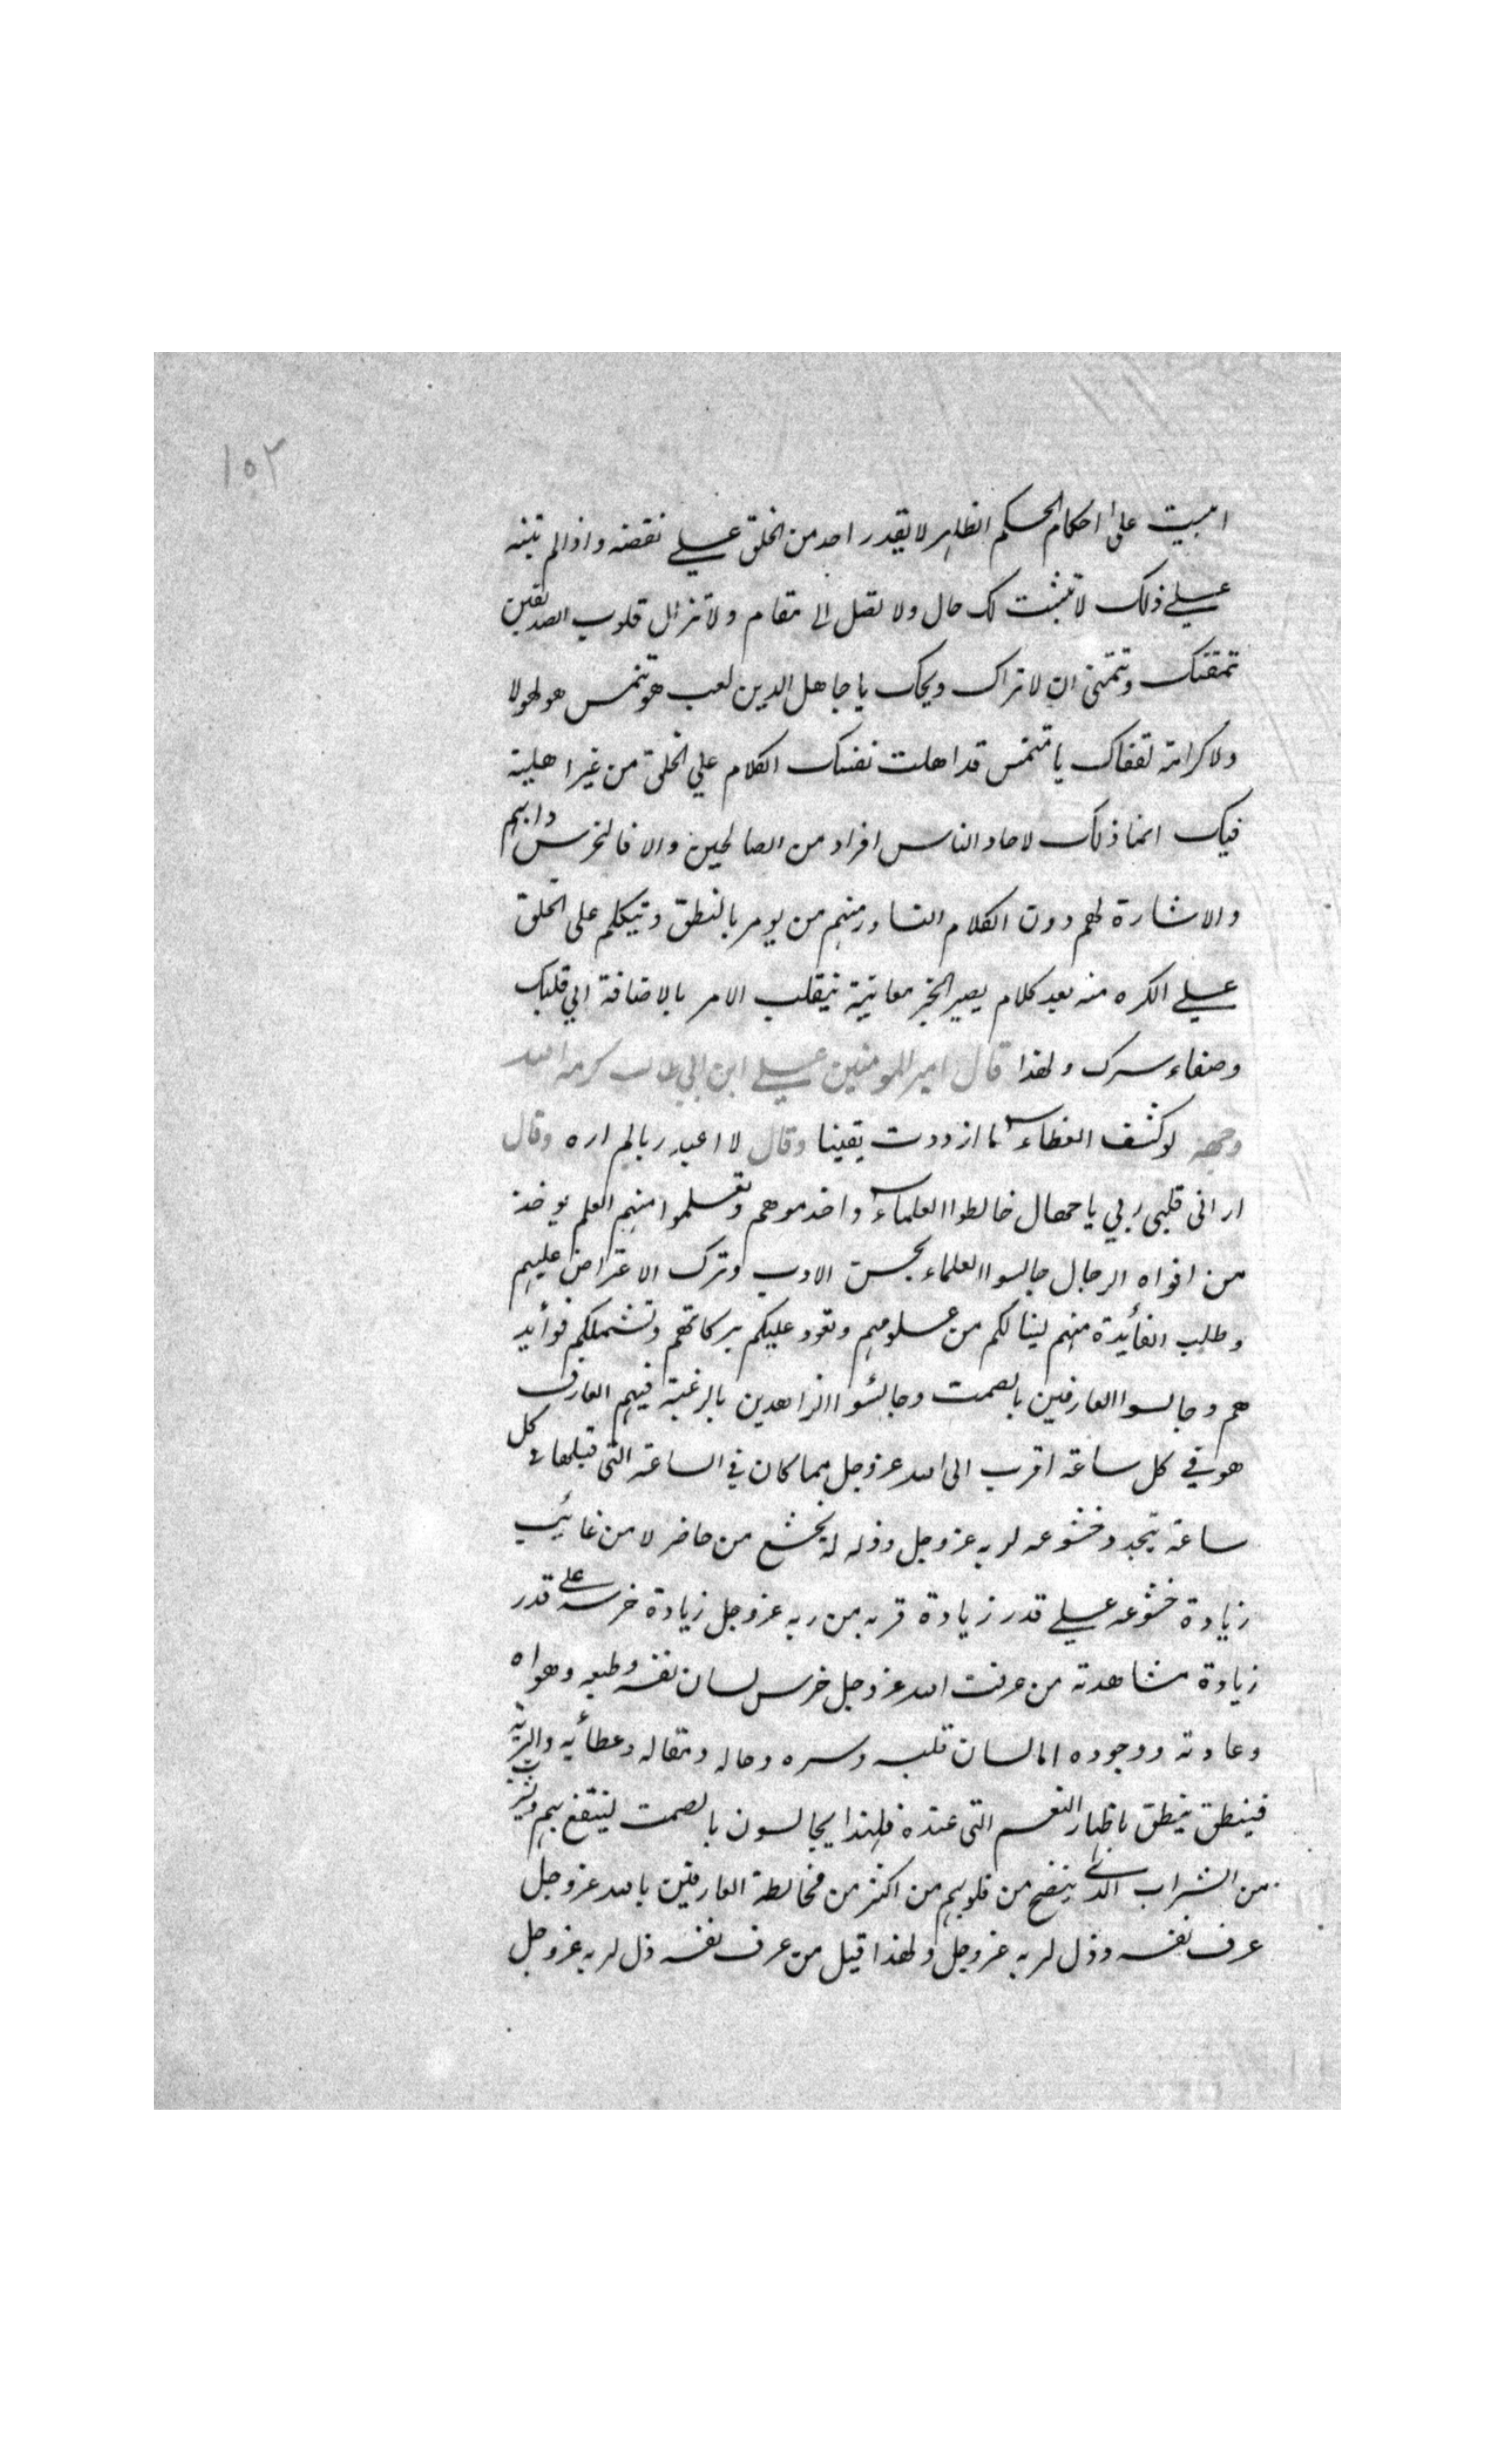 ١٥٢
ابنيت على احكام الحكم الظاهر لا يقدر احد من الخلق على نقضه واذا لم تبنه
على ذلك لا تثبت لك حال ولا تصل الى مقام ولا تزال قلوب الصديقين
تمقتك وتتمنى ان لا تراك ويحك يا جاهل الدين لعب هو تنمس هو لا ولا
ولا كرامة لقفاك يا متنمس قد اهلت نفسك الكلام على الخلق من غير اهلية
فيك انما ذلك لاحاد الناس افراد من الصالحين والا فالخرس دابهم
والاشارة لهم دون الكلام النادر منهم من يومر بالنطق وتيكلم على الخلق
على الكره منه بعد كلام يصير الخبر معاينة ينقلب الامر بالاضافة الى قلبك
وصفاء سرك ولهذا قال امير المومنين على ابن ابي طالب كرمه الله
وجهه لو كشف الغطاء ما ازددت يقينا وقال لا اعبد ربا لم اره وقال
ارانى قلبى ربي يا جهال خالطوا العلماء واخدموهم وتعلموا منهم العلم يوخذ
من افواه الرجال جالسوا العلماء بحسن الادب وترك الاعتراض عليهم
وطلب الفأيدة منهم لينالكم من علومهم وتعود عليكم بركاتهم وتشملكم فوأيد
هم وجالسوا العارفين بالصمت وجالسوا الزاهدين بالرغبة فيهم العارف
هو في كل ساعة اقرب الى الله عز وجل مما كان في الساعة التى قبلها في كل
ساعة يتجدد خشوعه لربه عز وجل وذله له يخشع من حاضر لا من غائب
زيادة خشوعه على قدر زيادة قربه من ربه عز وجل زيادة خرسه على قدر
زيادة مشاهدته من عرفت الله عز وجل خرس لسان نفسه وطبعه وهواه
وعادته ووجوده اما لسان قلبه وسره وحاله ومقاله وعطأيه
فينطق ينطق باظهار النعم التى عنده فلهذا يجالسون بالصمت لينتفع بهم ويشرب
من الشراب الذى ينضح من قلوبهم من اكثر من مخالطة العارفين بالله عز وجل
عرف نفسه وذل لربه عز وجل ولهذا قيل من عرف نفسه ذل لربه عز وجل